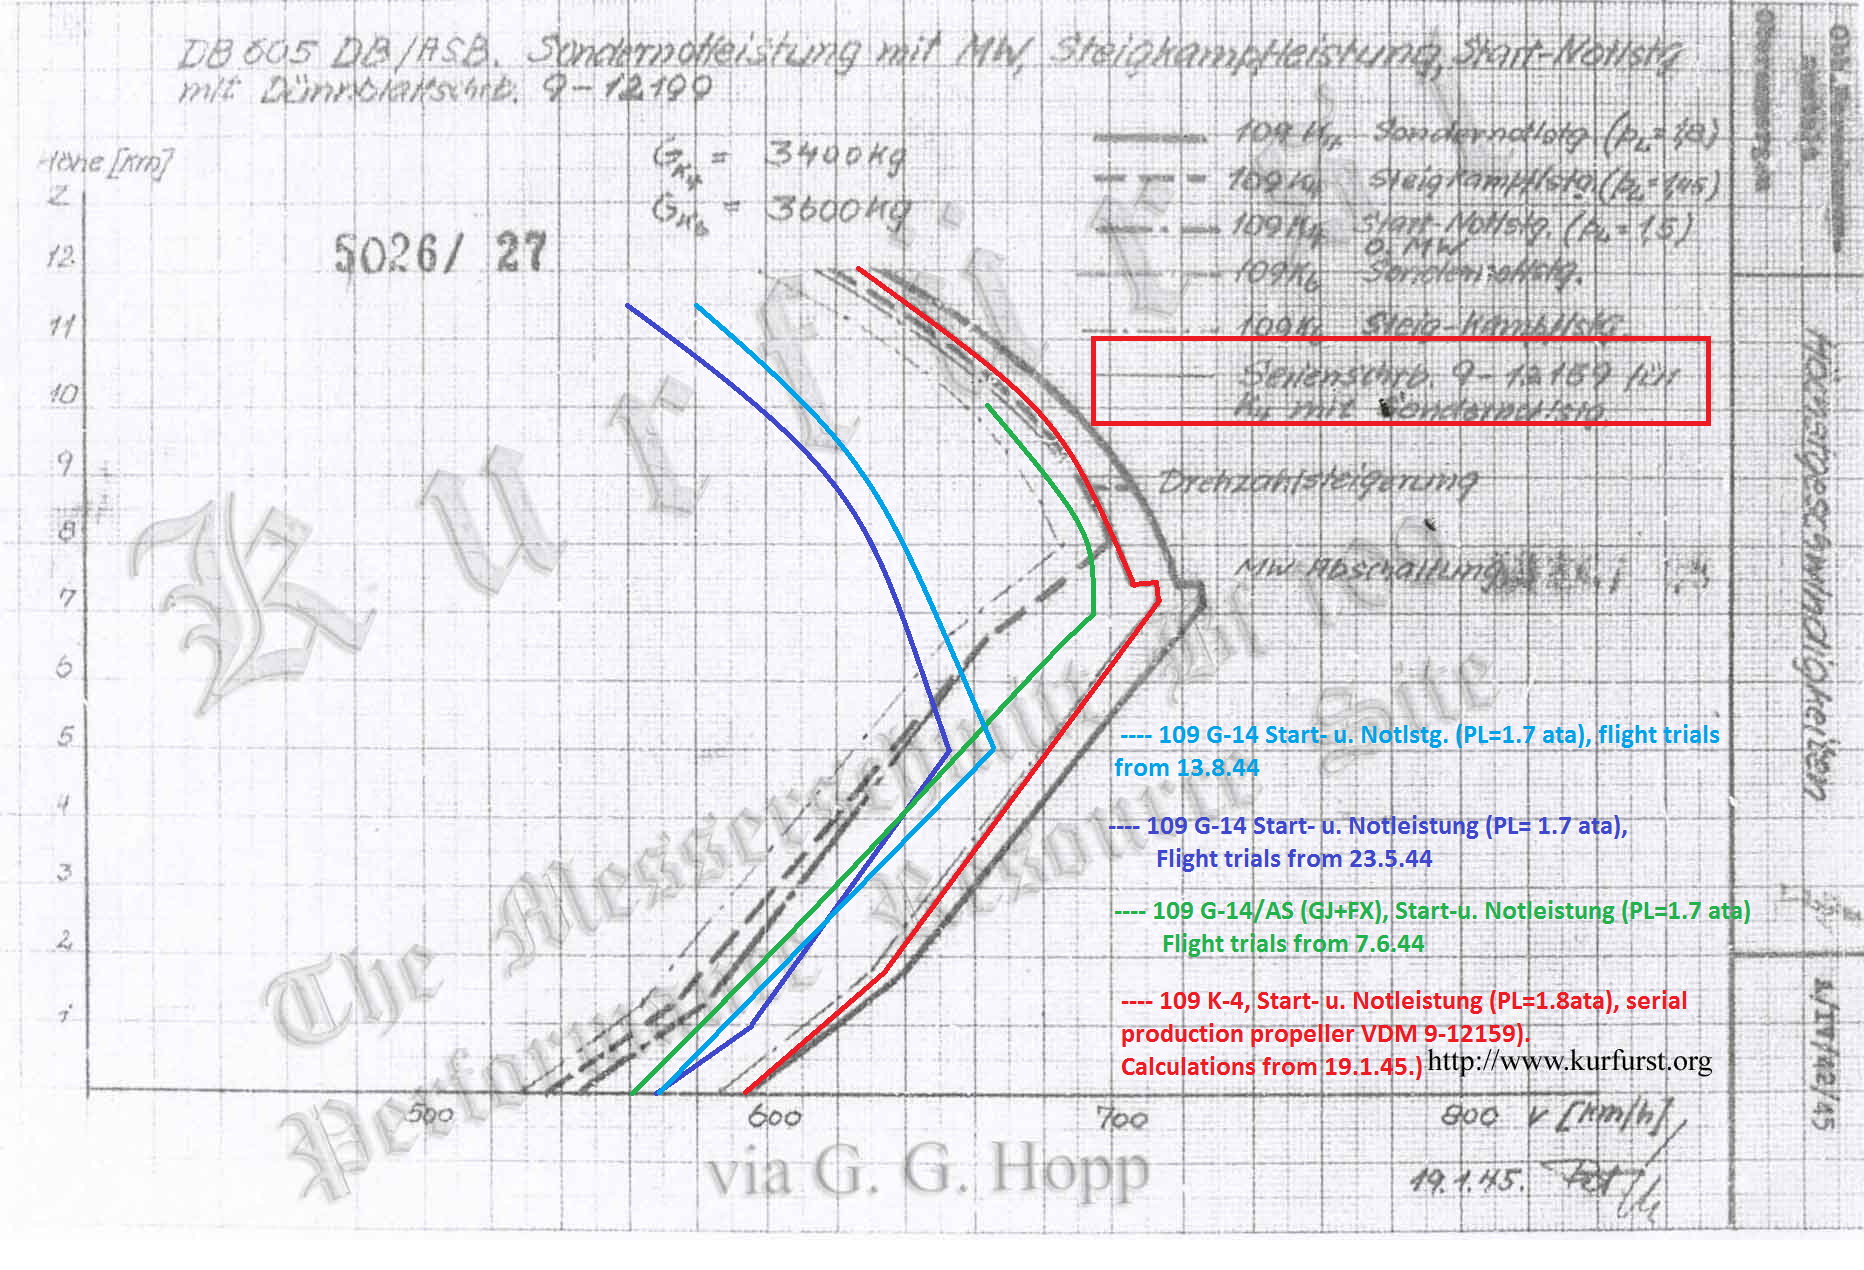 DB 605 DB/ASB. Sondernotleistung mit MW, Steigkampfleistung, Start-Notlstg
mit Dünnblattschrb. 9-12199
Höhe [km]
G K4 = 3400kg
G K6 = 3600kg
5026/ 27
109 K4 Sondernotlstg (pL=1,8)
109 K4 Steigkampflstg (pL=1,45)
109 K4 Start-Notlstg. (pL=1,5)
o. MW
109 K6 Sondernotlstg.
109 K6 Steig-Kampflstg.
Serienschrb 9-12159 für
K4 mit Sondernotlstg.
Drehzahlsteigerung
MW Abschaltung
12
11
10
9
8
7
6
5
4
3
2
1
500
600
700
800
v [km/h]
---- 109 G-14 Start- u. Notlstg. (PL=1.7 ata), flight trials
from 13.8.44
---- 109 G-14 Start- u. Notleistung (PL= 1.7 ata),
Flight trials from 23.5.44
---- 109 G-14/AS (GJ+FX), Start-u. Notleistung (PL=1.7 ata)
Flight trials from 7.6.44
---- 109 K-4, Start- u. Notleistung (PL=1.8ata), serial
production propeller VDM 9-12159).
Calculations from 19.1.45.)
http://www.kurfurst.org
19.1.45.
Höchstgeschwindigkeiten
Kurfürst
The Messerschmitt Bf 109
Performance Resource Site
via G. G. Hopp